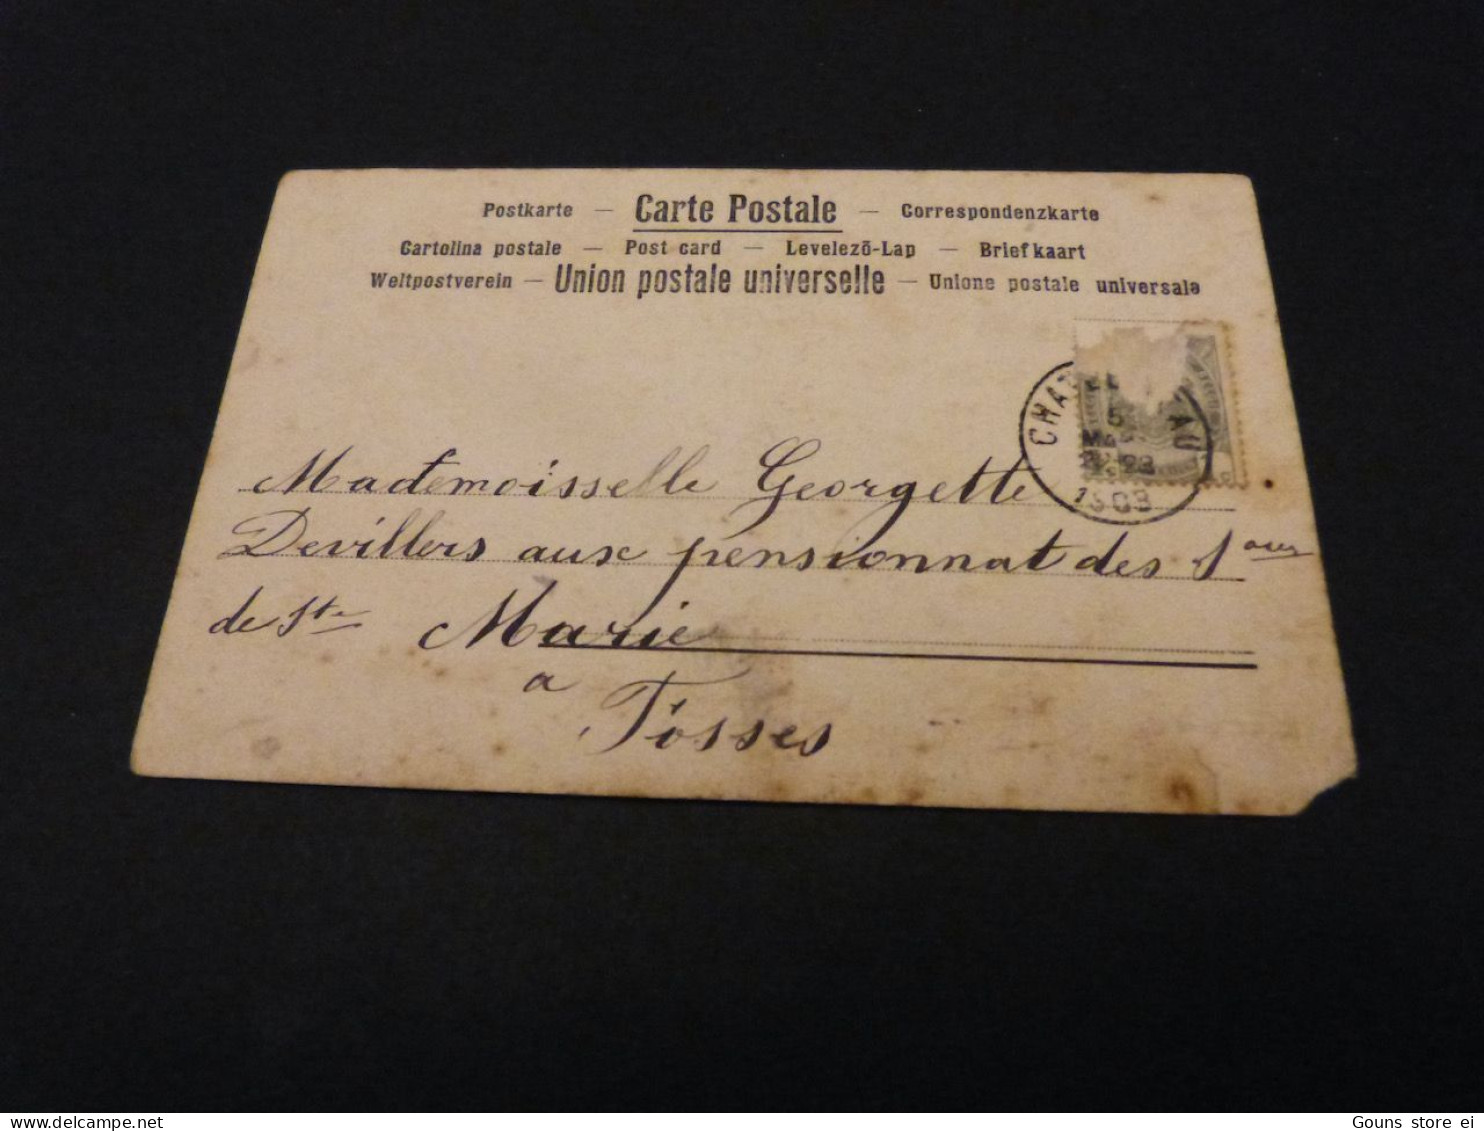 Postkarte — Carte Postale — Correspondenzkarte
Cartolina postale — Post card — Levelezõ-Lap — Briefkaart
Weltpostverein — Union postale universelle — Unione postale universale
CHAT AU
5
1903
Mademoisselle Georgette
Devillers aux pensionnat des Sœurs
de Ste Marie
a
Fosses
Gouns store ei